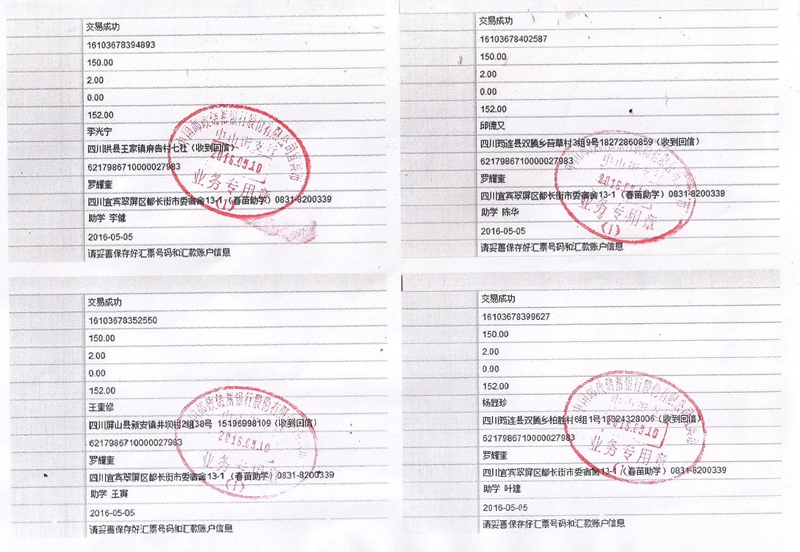 交易成功
16103678394893
150.00
2.00
0.00
152.00
李光宁
四川珙县王家镇麻告村七社（收到回信）
6217986710000027983
罗耀奎
四川宜宾翠屏区都长街市委宿舍13-1 （春苗助学）0831-8200339
助学 李健
2016-05-05
请妥善保存好汇票号码和汇款账户信息
2016.05.10
业务专用章
（1）
交易成功
16103678402587
150.00
2.00
0.00
152.00
邱德又
四川筠连县双腾乡苔草村3组9号18272860859（收到回信）
6217986710000027983
罗耀奎
四川宜宾翠屏区都长街市委宿舍13-1 （春苗助学）0831-8200339
助学 陈华
2016-05-05
请妥善保存好汇票号码和汇款账户信息
2016.05.10
业务专用章
（1）
交易成功
16103678352550
150.00
2.00
0.00
152.00
王奎修
四川屏山县新安镇井坝村2组38号 15196998109（收到回信）
6217986710000027983
罗耀奎
四川宜宾翠屏区都长街市委宿舍13-1 （春苗助学）0831-8200339
助学 王寅
2016-05-05
请妥善保存好汇票号码和汇款账户信息
2016.05.10
业务专用章
（1）
交易成功
16103678399627
150.00
2.00
0.00
152.00
杨显珍
四川筠连县双腾乡柏胜村6组1号18324328006（收到回信）
6217986710000027983
罗耀奎
四川宜宾翠屏区都长街市委宿舍13-1 （春苗助学）0831-8200339
助学 叶建
2016-05-05
请妥善保存好汇票号码和汇款账户信息
2016.05.10
业务专用章
（1）